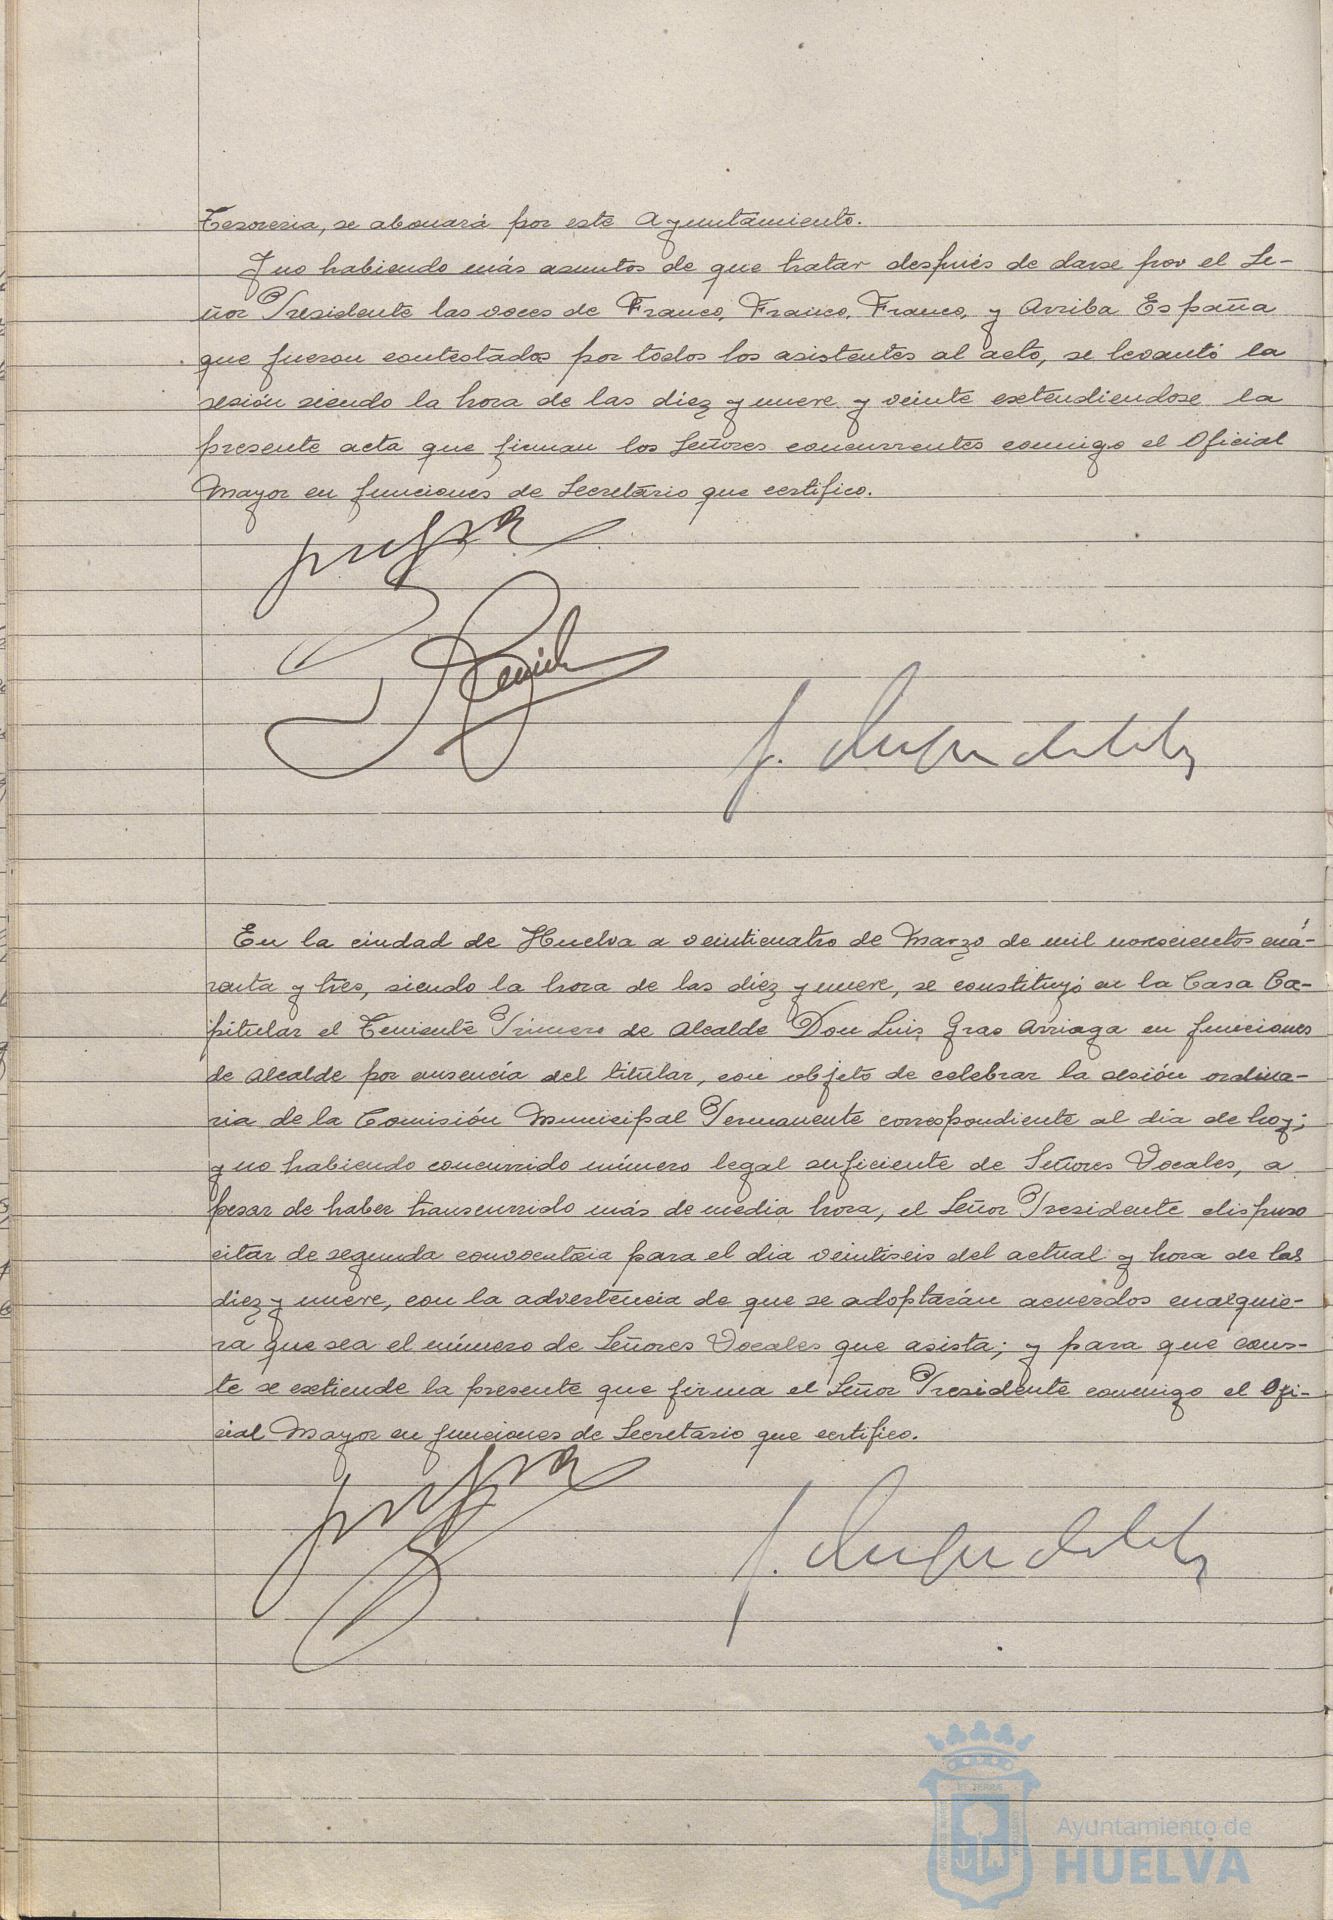 Tesoreria, se abonará por este Ayuntamiento.
Y no habiendo más asuntos de que tratar después de darse por el Se-
ñor Presidente las voces de Franco, Franco, Franco, y Arriba España
que fueron contestados por todos los asistentes al acto, se levantó la
sesión siendo la hora de las diez y nueve y veinte extendiendose la
presente acta que firman los Señores concurrentes conmigo el Oficial
Mayor en funciones de Secretario que certifico.
En la ciudad de Huelva a veinticuatro de Marzo de mil novecientos cua-
renta y tres, siendo la hora de las diez y nueve, se constituyó en la Casa Ca-
pitular el Teniente Primero de Alcalde Don Luis Grao Arriaga en funciones
de Alcalde por ausencia del titular, con objeto de celebrar la sesión ordina-
ria de la Comisión Municipal Permanente correspondiente al día de hoy;
y no habiendo concurrido número legal suficiente de Señores Vocales, a
pesar de haber transcurrido más de media hora, el Señor Presidente dispuso
citar de segunda convocatoria para el dia veintiseis del actual y hora de las
diez y nueve, con la advertencia de que se adoptarán acuerdos cualquie-
ra que sea el número de Señores Vocales que asista; y para que cons-
te se extiende la presente que firma el Señor Presidente conmigo el Ofi-
cial Mayor en funciones de Secretario que certifico.
Ayuntamiento de
HUELVA